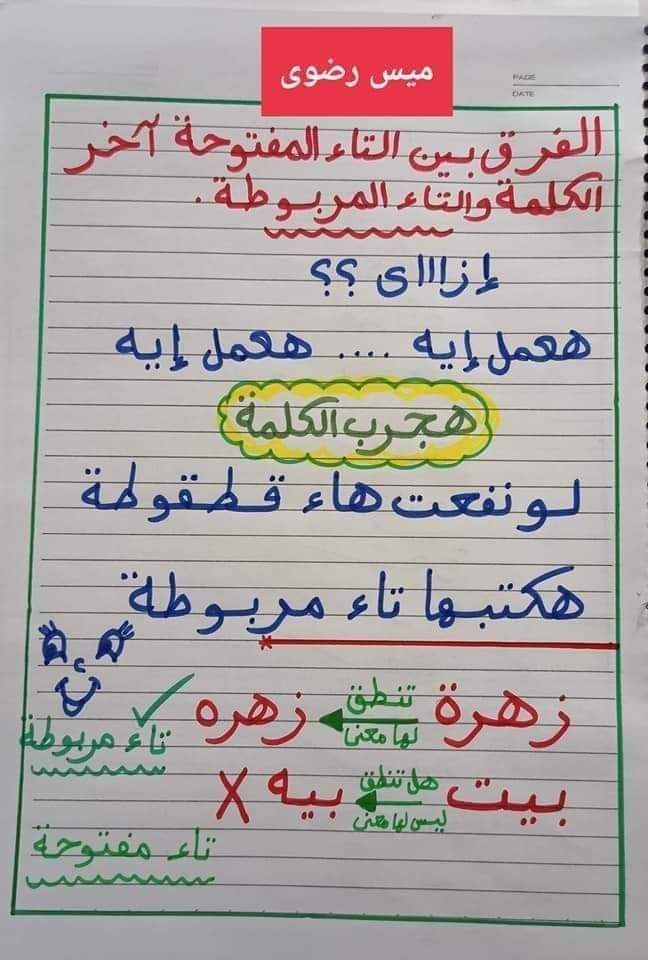 ميس رضوى
PAGE
DATE
الفرق بين التاء المفتوحة آخر
الكلمة والتاء المربوطة .
إزاااى ؟؟
هعمل إيه .... هعمل إيه
هجرب الكلمة
لو نفعت هاء قطقوطة
هكتبها تاء مربوطة
زهرة تنطق لها معنى زهره ✓
تاء مربوطة
بيت هل تنطق ليس لها معنى بيه X
تاء مفتوحة